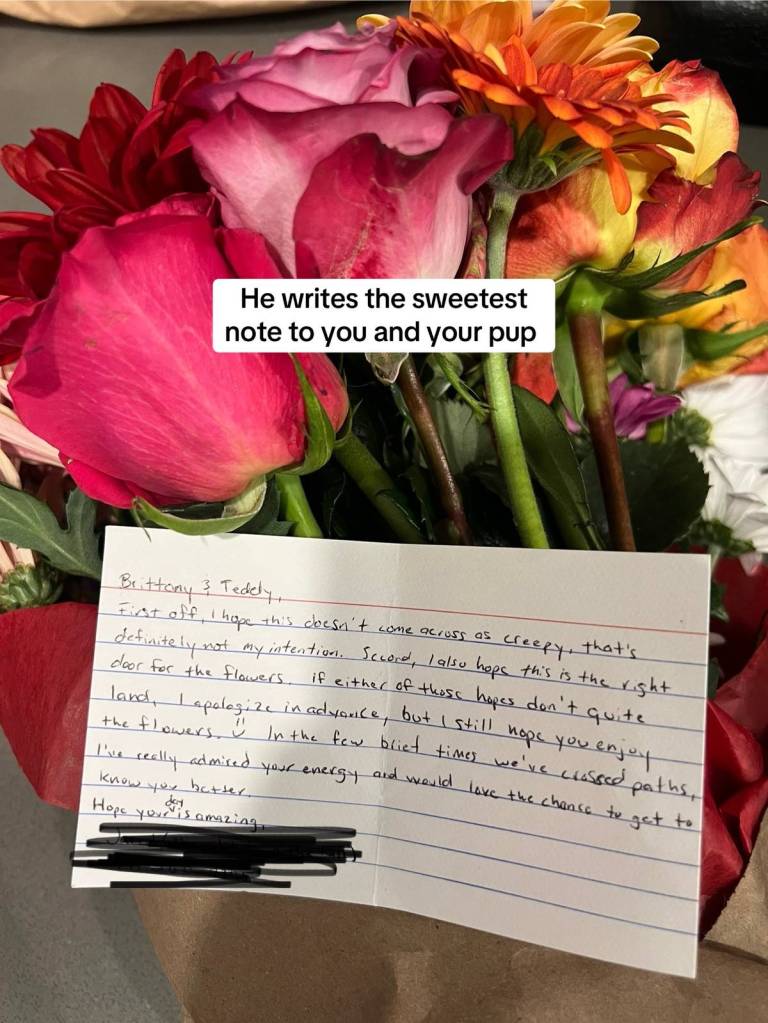 He writes the sweetest
note to you and your pup
Brittany & Teddy,
First off, I hope this doesn't come across as creepy, that's
definitely not my intention. Second, I also hope this is the right
door for the flowers, if either of those hopes don't quite
land, I apologize in advance, but I still hope you enjoy
the flowers. :) In the few brief times we've crossed paths,
I've really admired your energy and would love the chance to get to
know you better.
Hope your day is amazing,